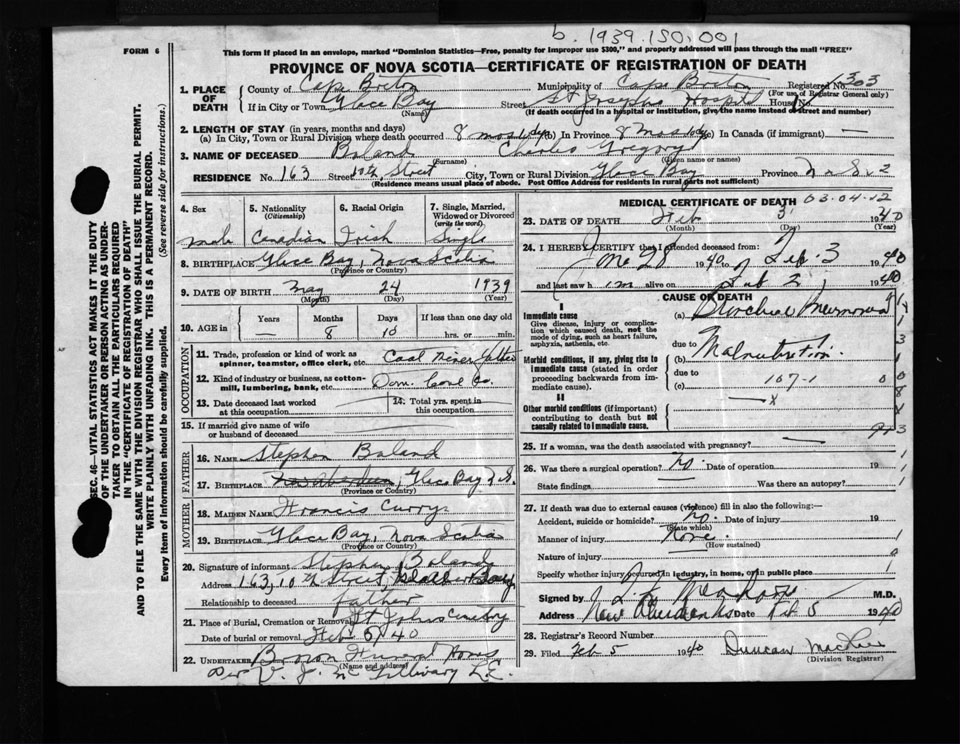 b. 1939.150.001
FORM 6
This form if placed in an envelope, marked "Dominion Statistics—Free, penalty for improper use $300," and properly addressed will pass through the mail "FREE"
PROVINCE OF NOVA SCOTIA—CERTIFICATE OF REGISTRATION OF DEATH
SEC. 46—VITAL STATISTICS ACT MAKES IT THE DUTY
OF THE UNDERTAKER OR PERSON ACTING AS UNDER-
TAKER TO OBTAIN ALL THE PARTICULARS REQUIRED
IN THE "CERTIFICATE OF REGISTRATION OF DEATH"
AND TO FILE THE SAME WITH THE DIVISION REGISTRAR WHO SHALL ISSUE THE BURIAL PERMIT.
WRITE PLAINLY WITH UNFADING INK. THIS IS A PERMANENT RECORD.
Every item of Information should be carefully supplied. (See reverse side for instructions.)
1. PLACE OF DEATH County of Cape Breton Municipality of Cape Breton Registered No. 303
(For use of Registrar General only)
If in City or Town Glace Bay Street St Josephs Hospital House No.
(Name) (If death occurred in a hospital or institution, give the name instead of street and number)
2. LENGTH OF STAY (in years, months and days)
(a) In City, Town or Rural Division where death occurred 8 mos (b) In Province 8 Mos (c) In Canada (if immigrant) —
3. NAME OF DECEASED Boland Charles Gregory
(Surname) (Given name or names)
RESIDENCE No. 163 Street 10th Street City, Town or Rural Division Glace Bay Province
(Residence means usual place of abode. Post Office Address for residents in rural parts not sufficient)
4. Sex 5. Nationality (Citizenship) 6. Racial Origin 7. Single, Married, Widowed or Divorced (write the word)
male Canadian Irish Single
8. BIRTHPLACE Glace Bay, Nova Scotia
(Province or Country)
9. DATE OF BIRTH May 24 1939
(Month) (Day) (Year)
10. AGE in Years Months Days If less than one day old
— 8 10 hrs. or min.
OCCUPATION
11. Trade, profession or kind of work as spinner, teamster, office clerk, etc. Coal Miner Father
12. Kind of industry or business, as cotton-mill, lumbering, bank, etc. Dom. Coal Co.
13. Date deceased last worked at this occupation 14. Total yrs. spent in this occupation
15. If married give name of wife or husband of deceased
FATHER
16. NAME Stephen Boland
17. BIRTHPLACE New Aberdeen, Glace Bay N.S.
(Province or Country)
MOTHER
18. MAIDEN NAME Francis Curry
19. BIRTHPLACE Glace Bay, Nova Scotia
(Province or Country)
20. Signature of informant Stephen Boland
Address 163, 10th Street, Glace Bay
Relationship to deceased father
21. Place of Burial, Cremation or Removal St Johns
Date of burial or removal Feb 5/40
22. UNDERTAKER Brown Funeral Home
(Name and address)
Per V. J. McGillivary L.E.
MEDICAL CERTIFICATE OF DEATH 03-04-12
23. DATE OF DEATH Feb 3 1940
(Month) (Day) (Year)
24. I HEREBY CERTIFY that I attended deceased from:
Jan 28 1940 to Feb. 3 1940
and last saw him alive on Feb 2 1940
CAUSE OF DEATH
I
Immediate cause
Give disease, injury or complication which caused death, not the mode of dying, such as heart failure, asphyxia, asthenia, etc.
(a) Bronchial Pneumonia
due to
Morbid conditions, if any, giving rise to immediate cause (stated in order proceeding backwards from immediate cause).
(b) Malnutrition
due to
(c) 107-1
II
Other morbid conditions (if important) contributing to death but not causally related to immediate cause.
25. If a woman, was the death associated with pregnancy? —
26. Was there a surgical operation? No. Date of operation 19
State findings Was there an autopsy?
27. If death was due to external causes (violence) fill in also the following:—
Accident, suicide or homicide? No. Date of injury 19
(State which)
Manner of injury None
(How sustained)
Nature of injury
Specify whether injury occurred in industry, in home, or in public place
Signed by M.D.
Address New Aberdeen Date Feb 5 1940
28. Registrar's Record Number
29. Filed Feb 5 1940 Duncan
(Division Registrar)